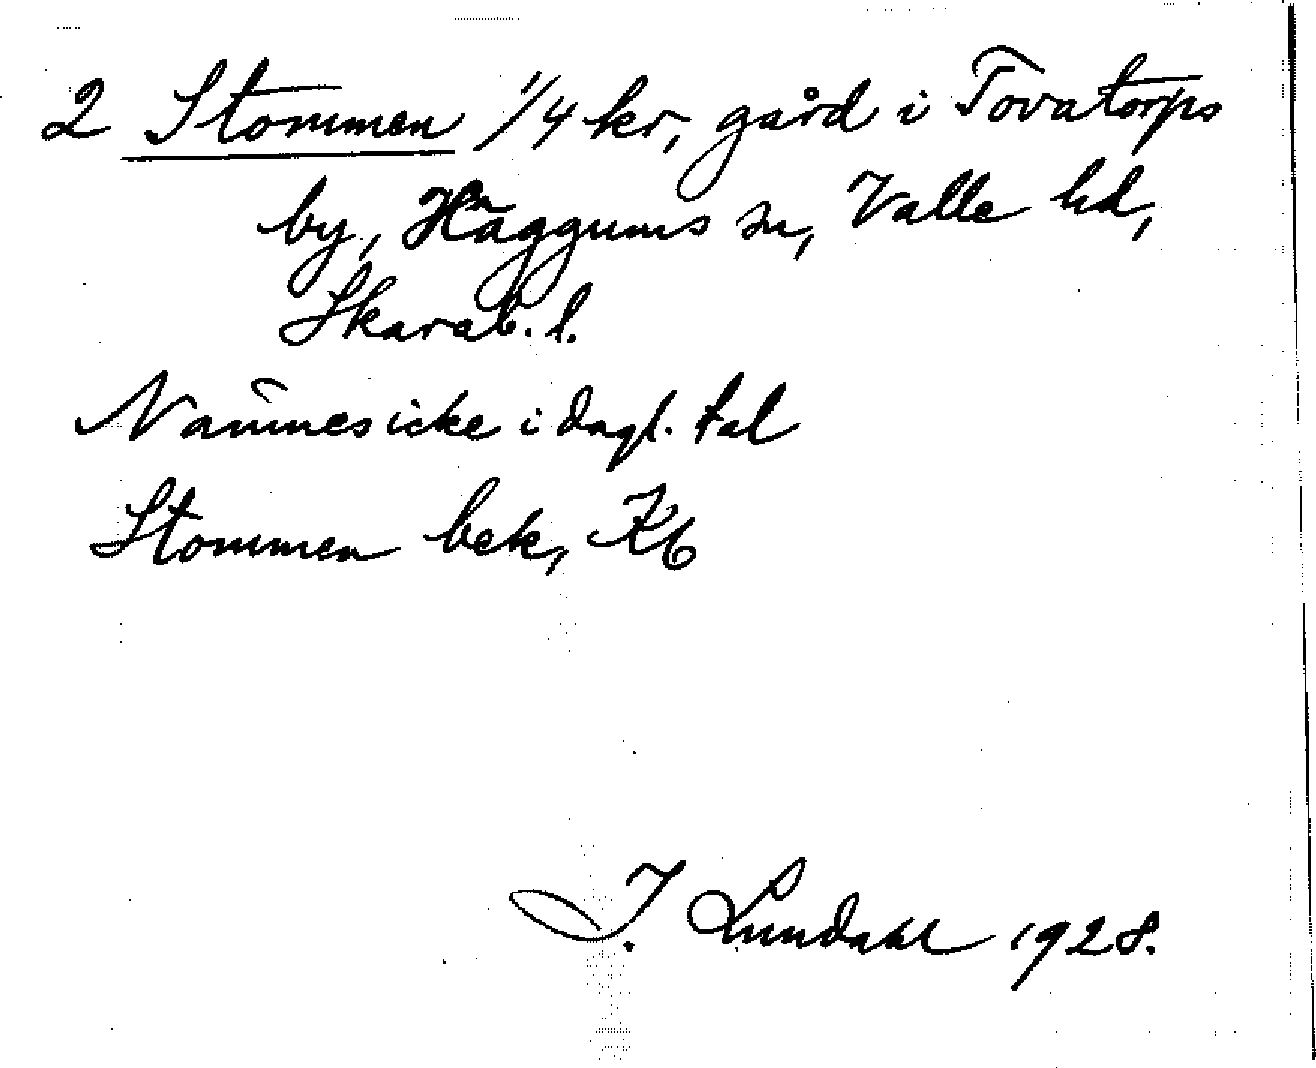 2 Stommen 1/4 kr, gård i Tovatorps
by, Häggums sn, Valle hd,
Skarab. l.
Nämnes icke i dagl. tal
Stommen bek, Kb
I. Lundahl 1928.